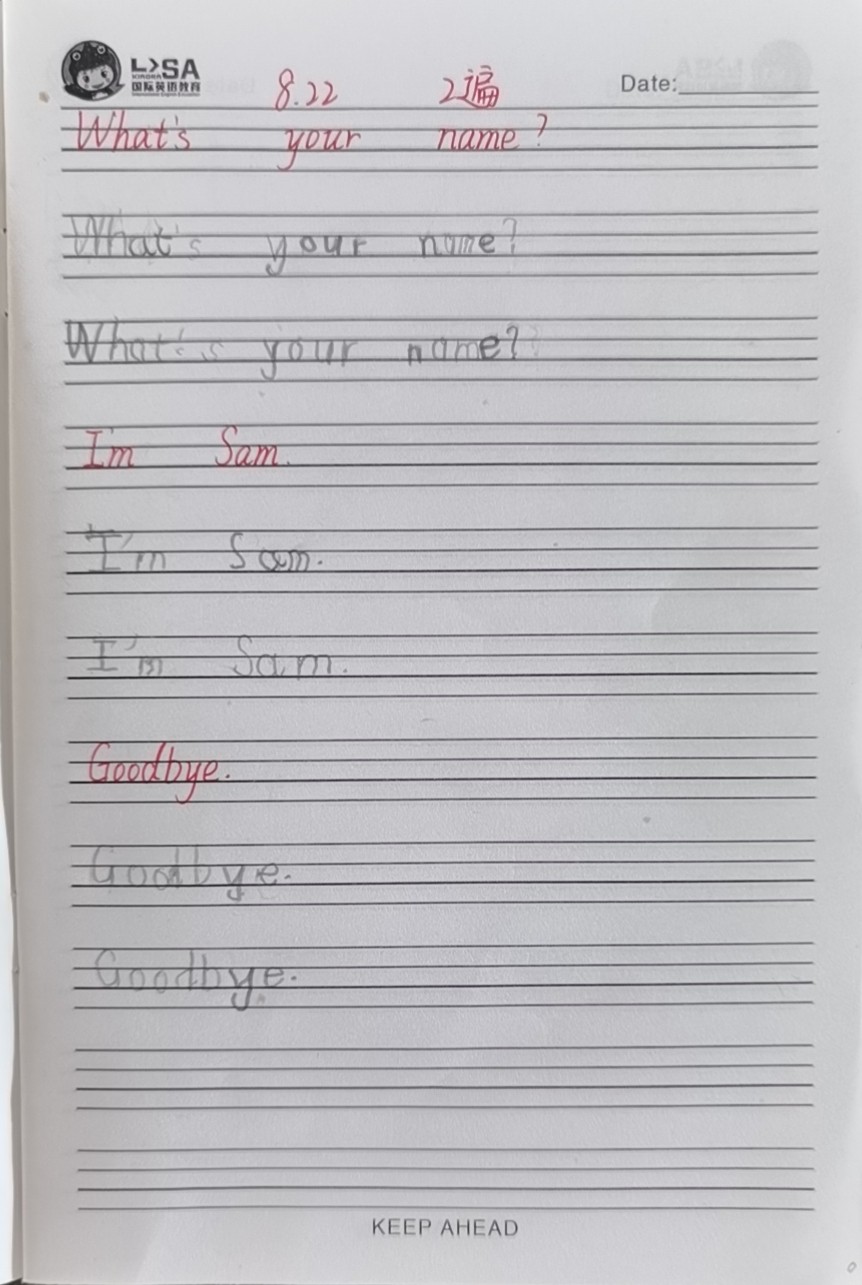 L>SA
国际英语教育
8.22 2遍 Date:
What's your name?
What's your name?
What's your name?
I'm Sam.
I'm Sam.
I'm Sam.
Goodbye.
Goodbye.
Goodbye.
KEEP AHEAD